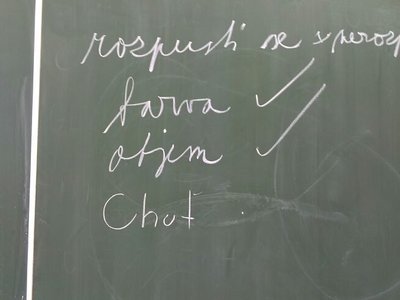 rozpustí se x nerozp
barva ✓
objem ✓
Chuť